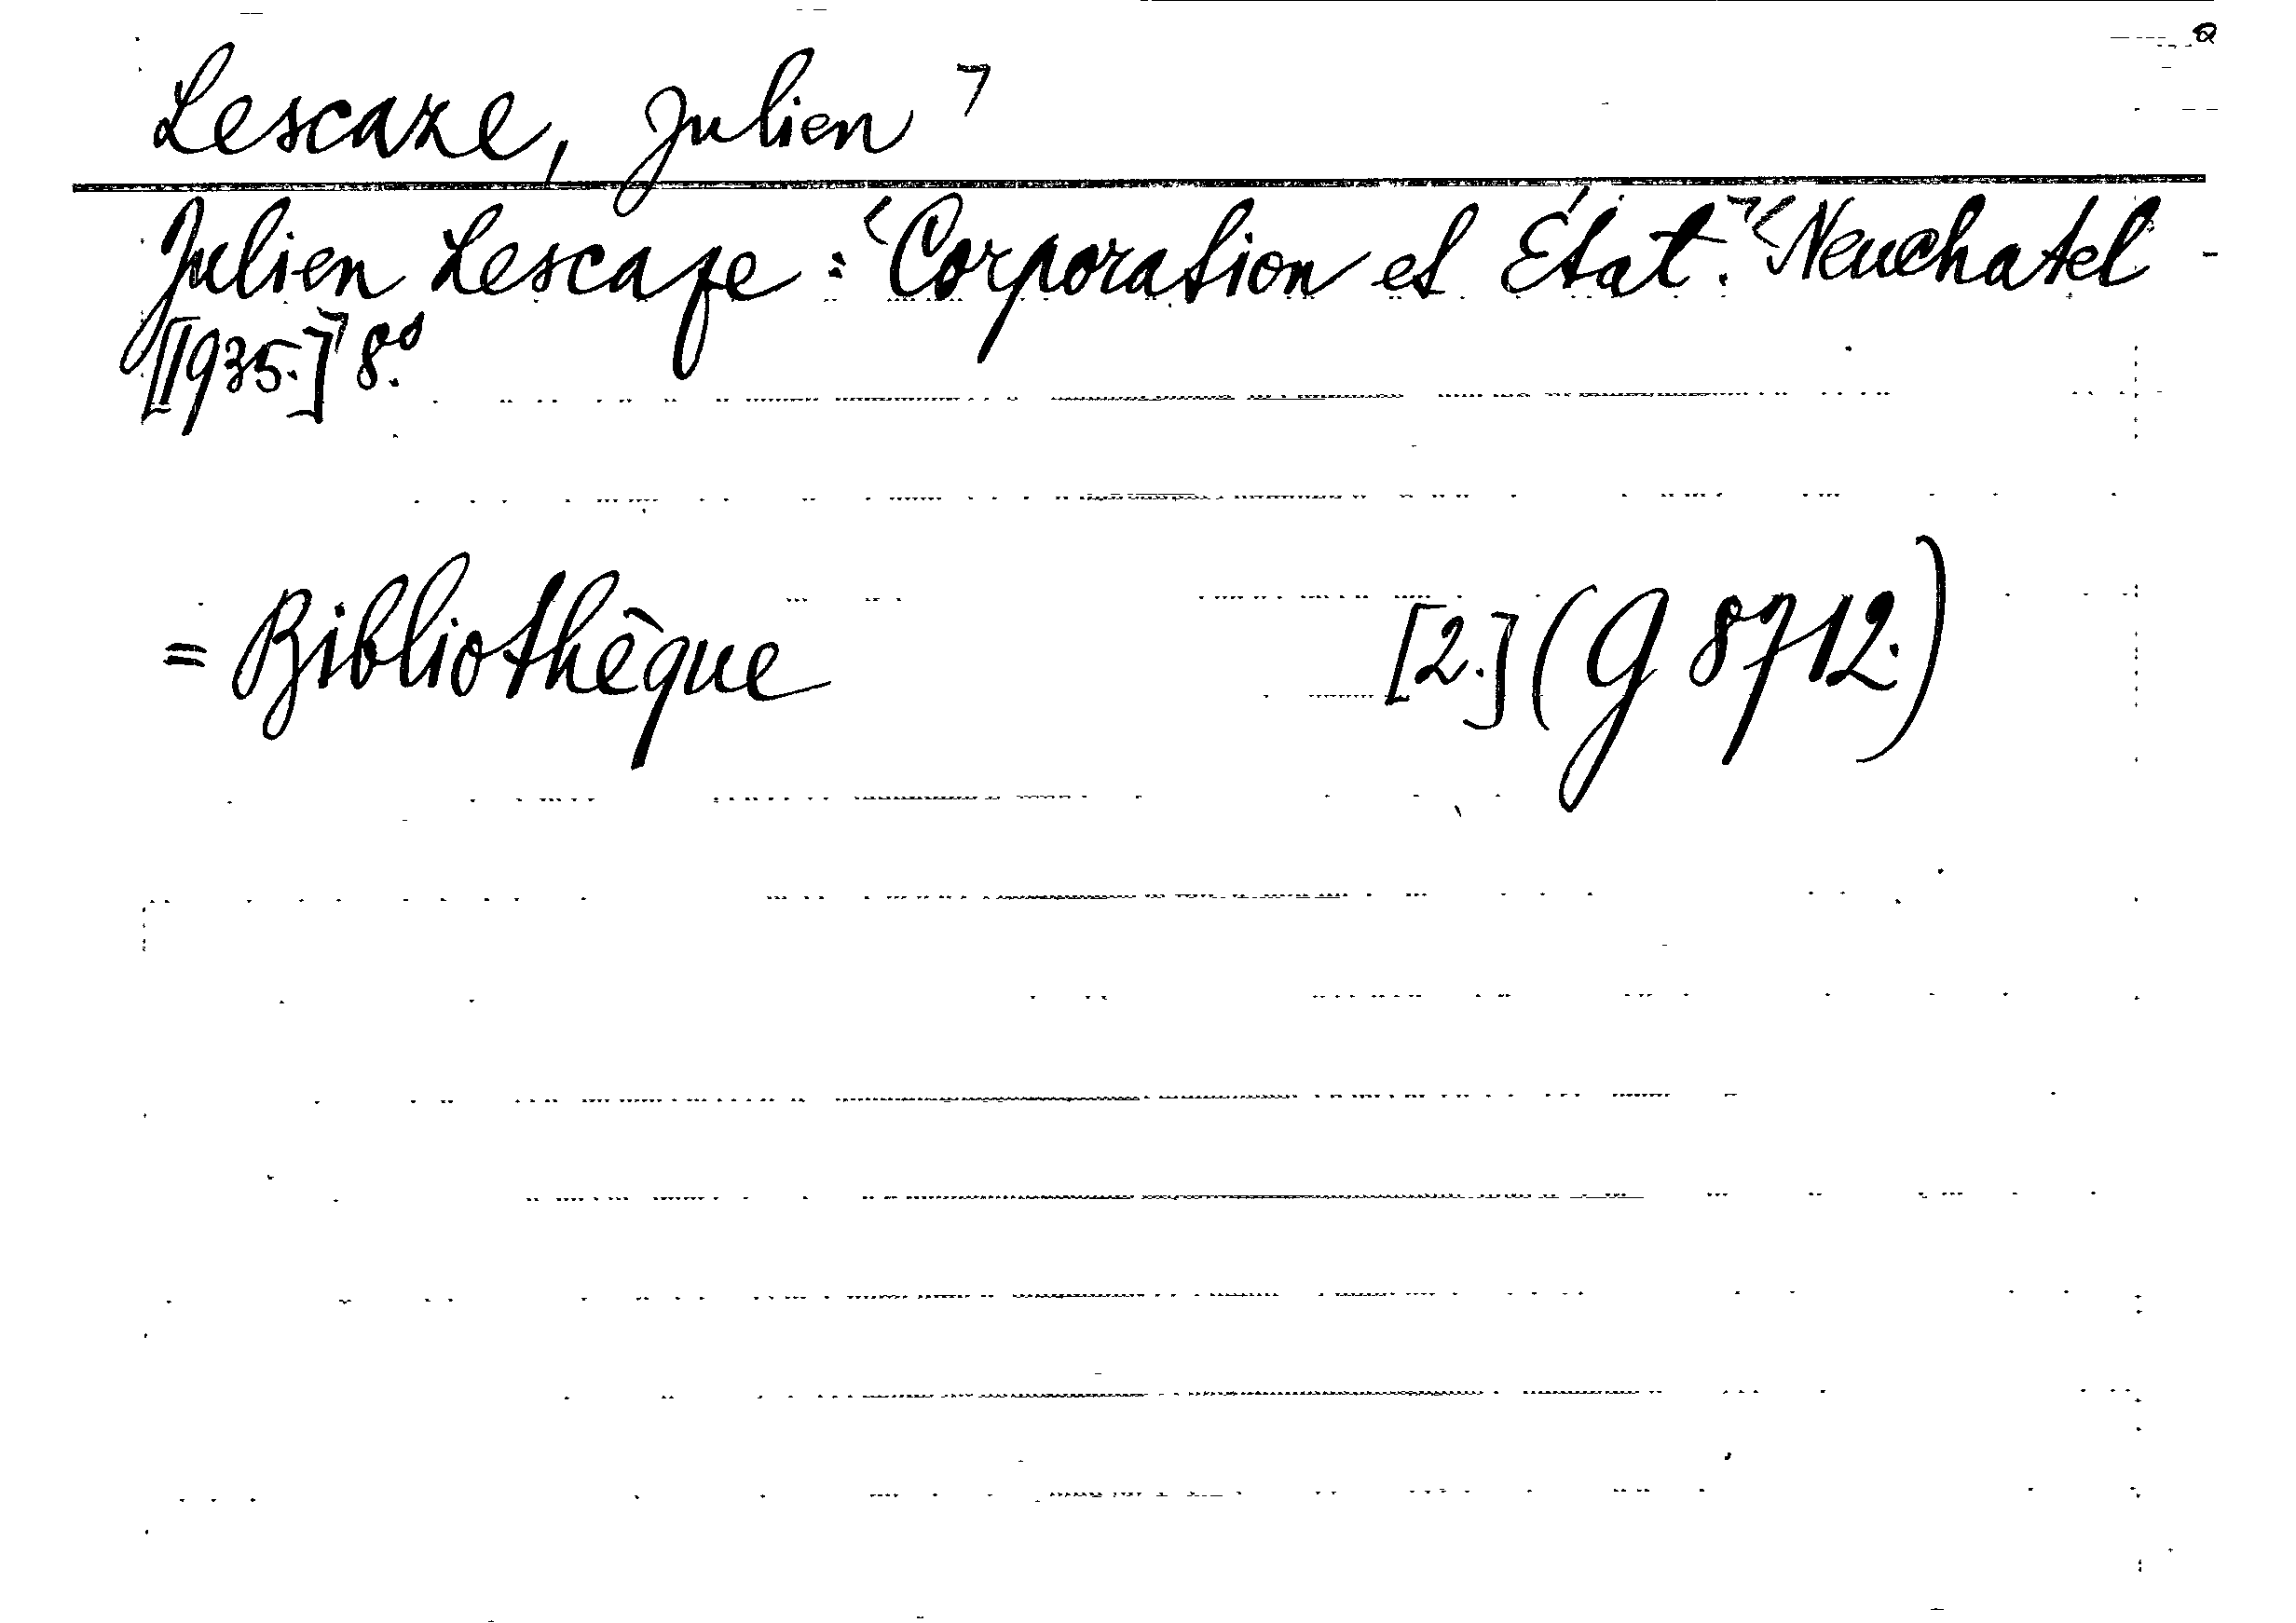 Lescaze, Julien
Julien Lescaze: Corporation et État. Neuchatel
[1935.] 8.°
= Bibliothèque [2.] (G 8712.)